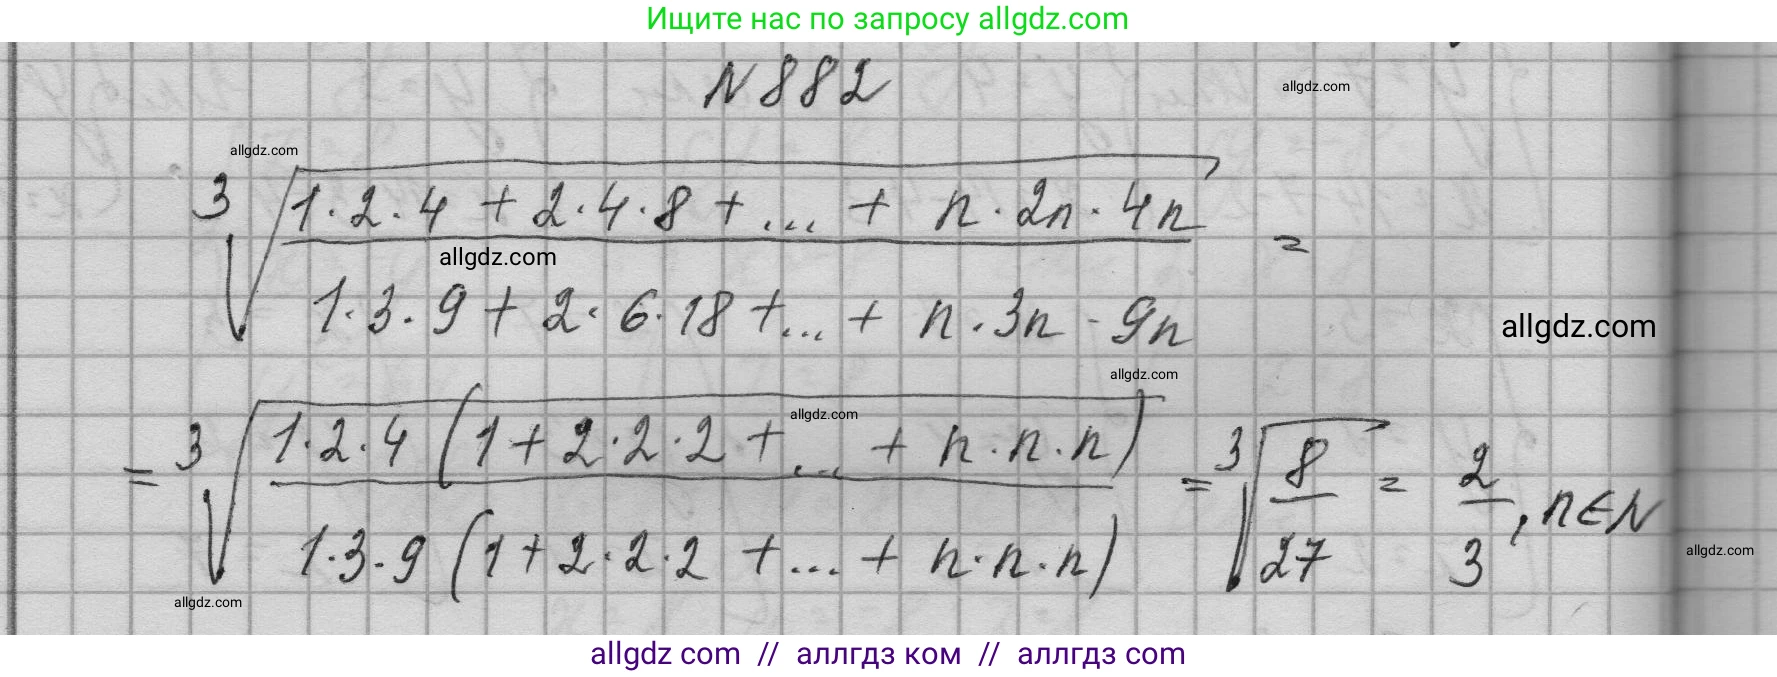 Ищите нас по запросу allgdz.com
N 882
allgdz.com
allgdz.com
∛((1·2·4 + 2·4·8 + ... + n·2n·4n) / (1·3·9 + 2·6·18 + ... + n·3n·9n)) =
allgdz.com
allgdz.com
allgdz.com
= ∛((1·2·4 (1 + 2·2·2 + ... + n·n·n)) / (1·3·9 (1 + 2·2·2 + ... + n·n·n))) = ∛(8/27) = 2/3, n∈N
allgdz.com
allgdz.com
allgdz.com
allgdz com // аллгдз ком // аллгдз com